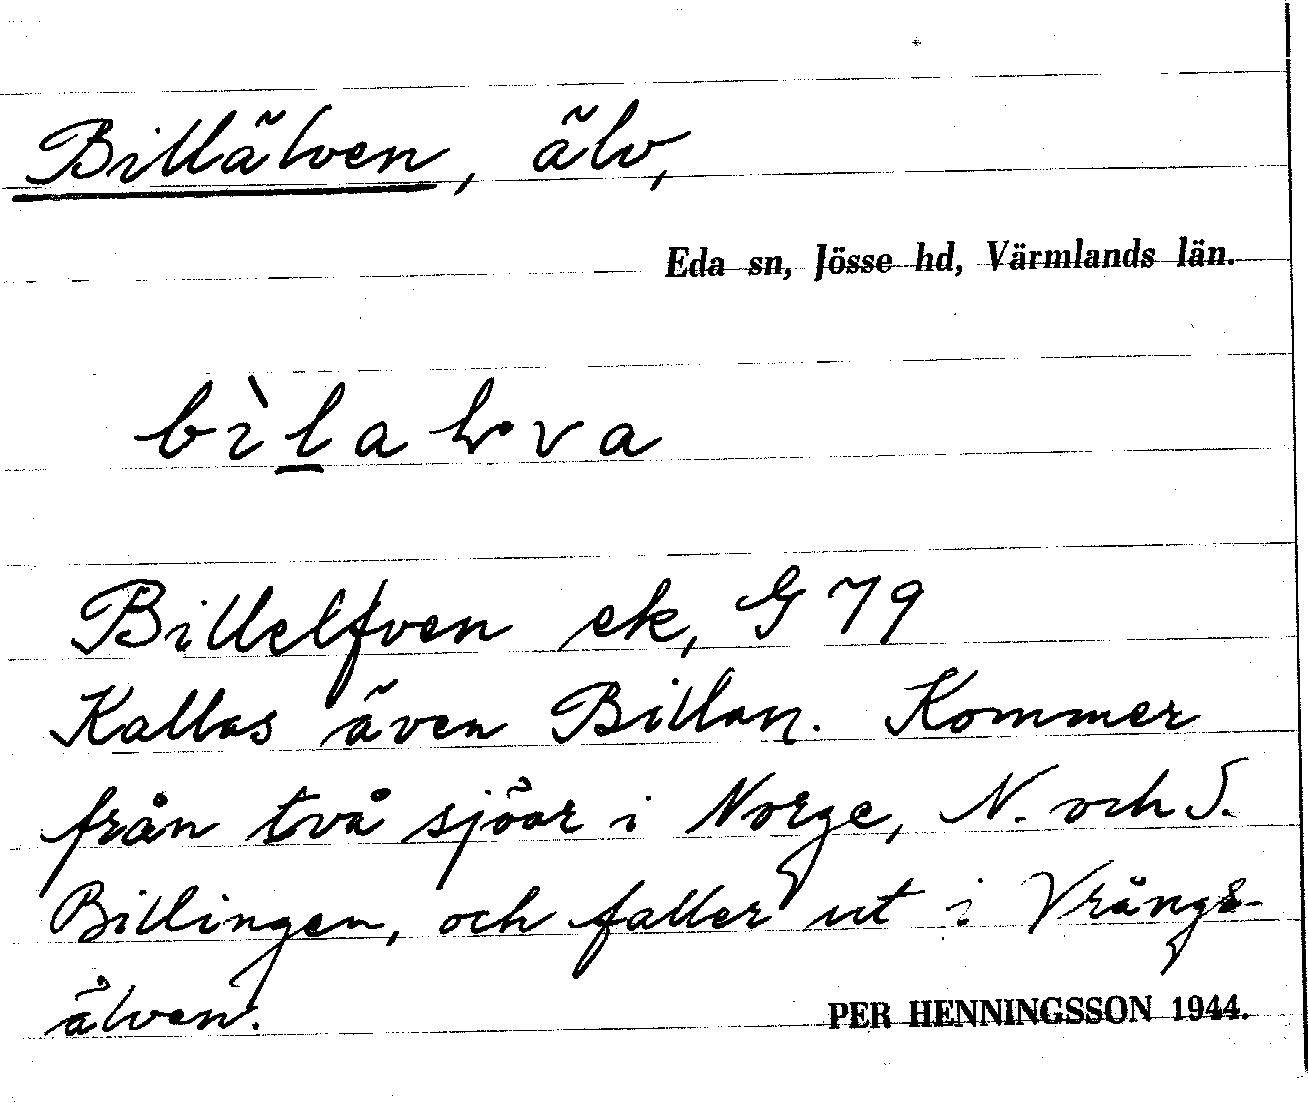 Billälven, älv,
Eda sn, Jösse hd, Värmlands län.
Billelfven ek, G 79
Kallas även Billan. Kommer
från två sjöar i Norge, N. och S.
Billingen, och faller ut i Vrångs-
älven.
PER HENNINGSSON 1944.